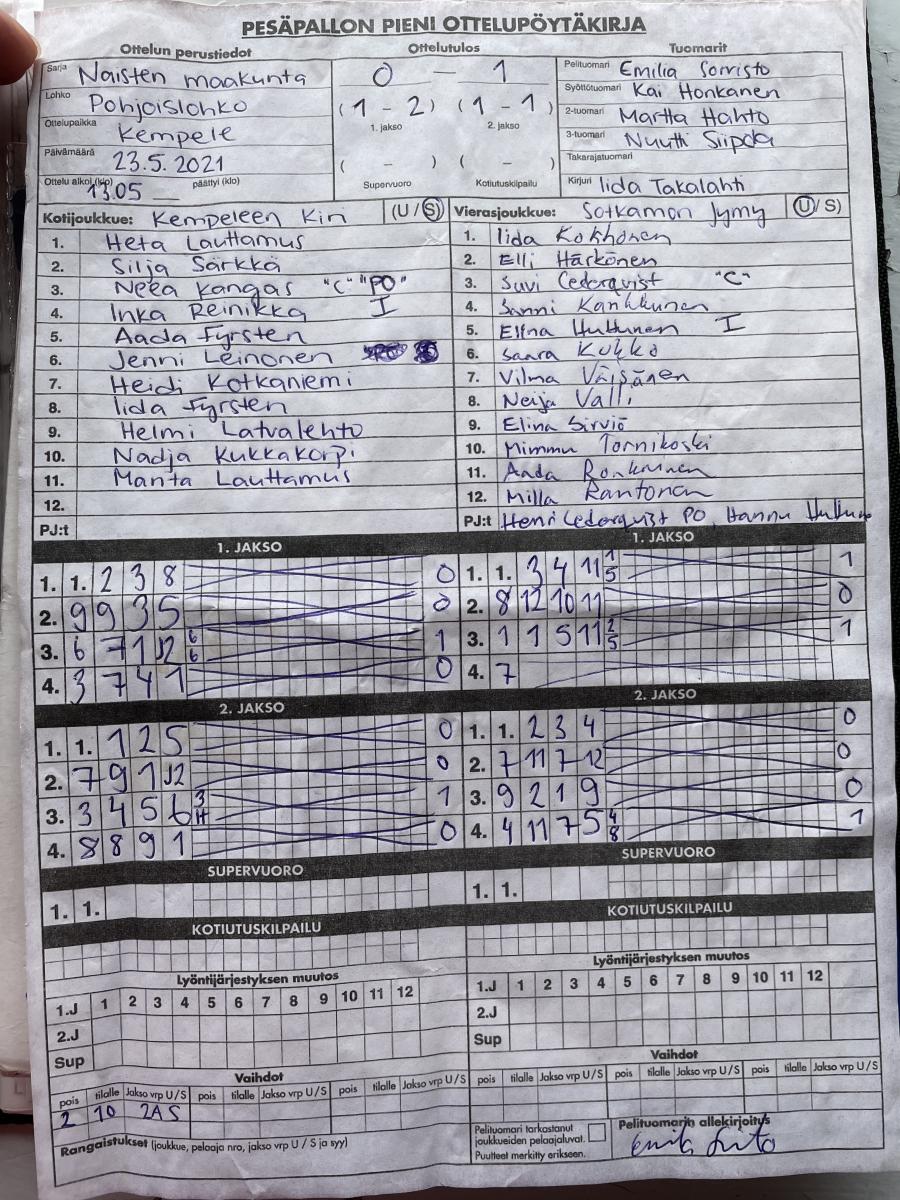 PESÄPALLON PIENI OTTELUPÖYTÄKIRJA
Ottelun perustiedot
Sarja Naisten maakunta
Lohko Pohjoislohko
Ottelupaikka Kempele
Päivämäärä 23.5.2021
Ottelu alkoi (klo) 13.05 päättyi (klo)
Ottelutulos
0 – 1
(1 - 2) (1 - 1)
1. jakso 2. jakso
( - ) ( - )
Supervuoro Kotiutuskilpailu
Tuomarit
Pelituomari Emilia Sorvisto
Syöttötuomari Kai Honkanen
2-tuomari Martta Hahto
3-tuomari Nuutti Siipola
Takarajatuomari
Kirjuri Iida Takalahti
Kotijoukkue: Kempeleen Kiri (U / S)
1. Heta Lauttamus
2. Silja Särkkä
3. Neea Kangas "C" "PO"
4. Inka Reinikka I
5. Aada Fyrsten
6. Jenni Leinonen
7. Heidi Kotkaniemi
8. Iida Fyrsten
9. Helmi Latvalehto
10. Nadja Kukkakorpi
11. Manta Lauttamus
12.
PJ:t
Vierasjoukkue: Sotkamon Jymy (U / S)
1. Iida Kokhonen
2. Elli Härkönen
3. Suvi Cederqvist "C"
4. Sanni Kankkunen
5. Elina Huttunen I
6. Saara Kukko
7. Vilma Väisänen
8. Neija Valli
9. Elina Sirviö
10. Mimmu Tornikoski
11. Aada Ronkainen
12. Milla Rantonen
PJ:t Henri Cederqvist PO, Hannu Huttunen
1. JAKSO
1. 1. 2 3 8 0
2. 9 9 3 5 0
3. 6 7 1 J2 6 6 1
4. 3 7 4 1 0
1. JAKSO
1. 1. 3 4 11 1 5 1
2. 8 12 10 11 0
3. 1 1 5 11 2 5 1
4. 7
2. JAKSO
1. 1. 1 2 5 0
2. 7 9 1 J2 0
3. 3 4 5 6 3 11 1
4. 8 8 9 1 0
2. JAKSO
1. 1. 2 3 4 0
2. 7 11 7 12 0
3. 9 2 1 9 0
4. 4 11 7 5 4 8 1
SUPERVUORO
1. 1.
SUPERVUORO
1. 1.
KOTIUTUSKILPAILU
KOTIUTUSKILPAILU
Lyöntijärjestyksen muutos
1.J 1 2 3 4 5 6 7 8 9 10 11 12
2.J
Sup
Lyöntijärjestyksen muutos
1.J 1 2 3 4 5 6 7 8 9 10 11 12
2.J
Sup
Vaihdot
pois tilalle Jakso vrp U/S pois tilalle Jakso vrp U/S pois tilalle Jakso vrp U/S
2 10 2AS
Vaihdot
pois tilalle Jakso vrp U/S pois tilalle Jakso vrp U/S pois tilalle Jakso vrp U/S
Rangaistukset (joukkue, pelaaja nro, jakso vrp U / S ja syy)
Pelituomari tarkastanut
joukkueiden pelaajaluvat.
Puutteet merkitty erikseen.
Pelituomarin allekirjoitus